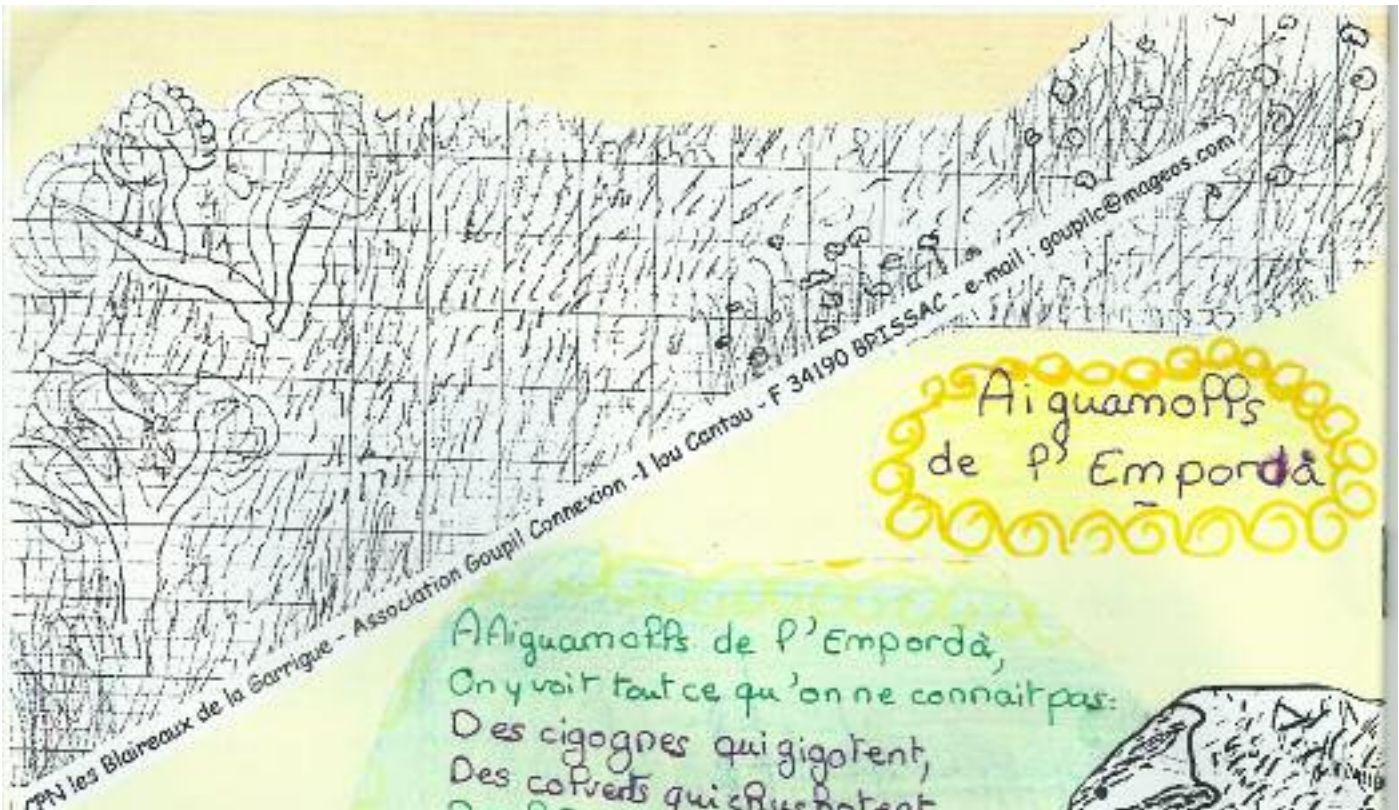 CPN les Blaireaux de la Garrigue - Association Goupil Connexion -1 lou Cantou - F 34190 BRISSAC - e-mail : goupilc@mageos.com
Aiguamolls
de l' Empordà
A Aiguamolls de l'Empordà,
On y voit tout ce qu'on ne connait pas:
Des cigognes qui gigotent,
Des colverts qui chuchotent